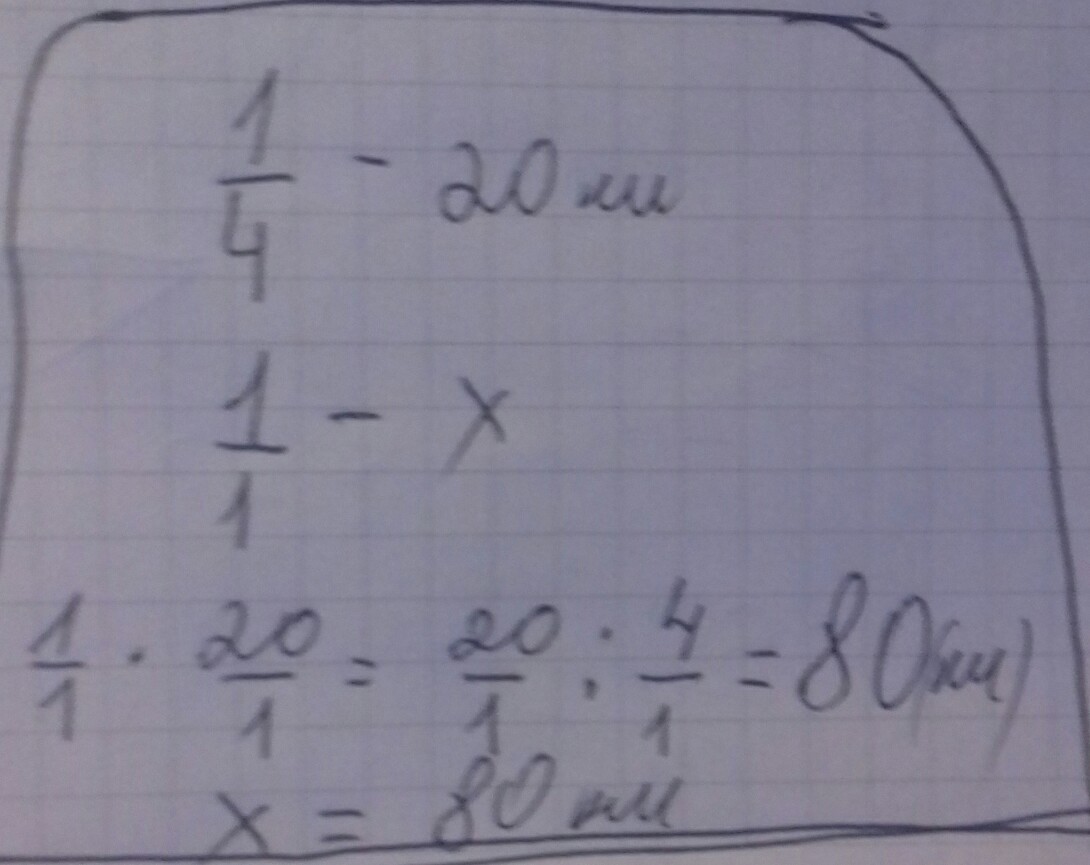 1/4 - 20 мм
1/1 - x
1/1 · 20/1 = 20/1 : 4/1 = 80(мм)
x = 80 мм